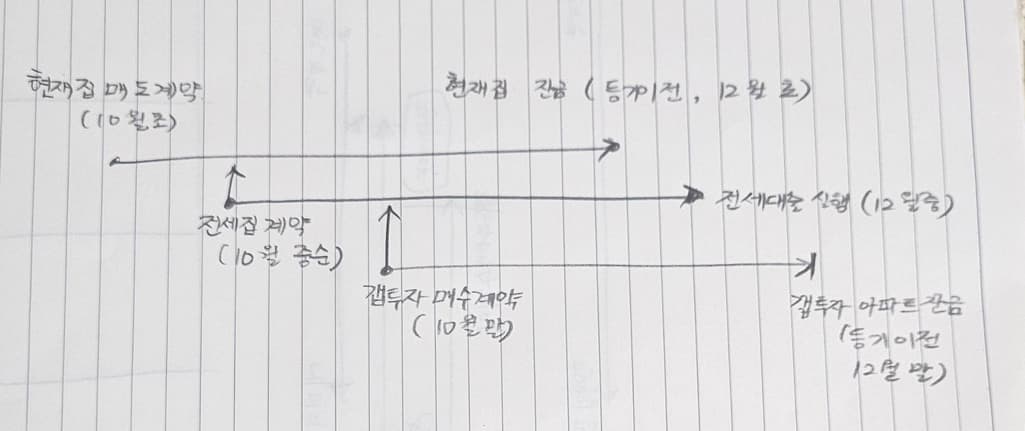 현재집 매도계약
(10월초)
현재집 잔금 (등기이전, 12월 초)
전세집 계약
(10월 중순)
전세대출 실행 (12월중)
갭투자 매수계약
(10월 말)
갭투자 아파트 잔금
(등기이전
12월 말)